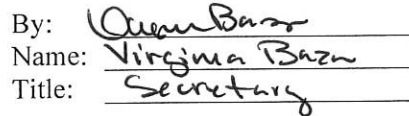 By:
Name: Virginia Baza
Title: Secretary